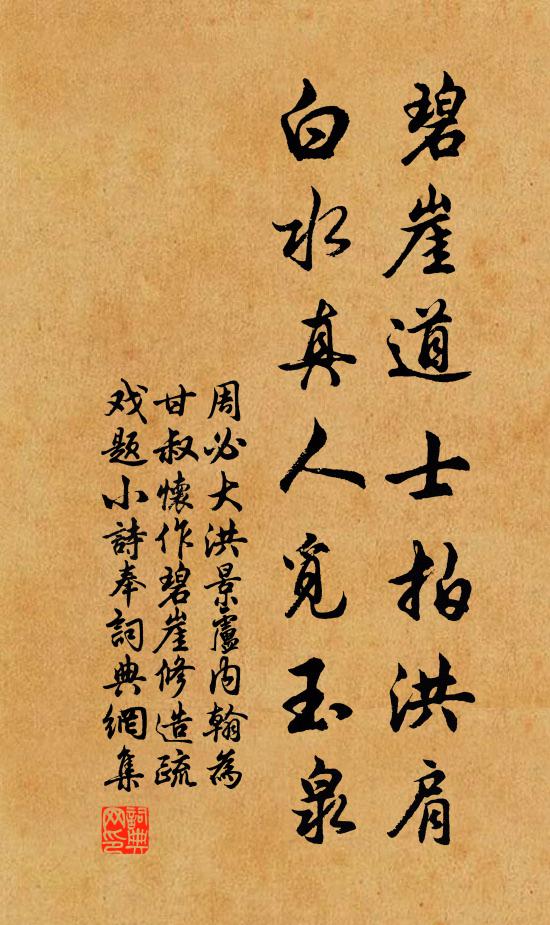 碧崖道士拍洪肩
白水真人覓玉泉
周必大洪景盧內翰為
甘叔懷作碧崖修造疏
戏题小詩奉詞典網集
詞典
网印